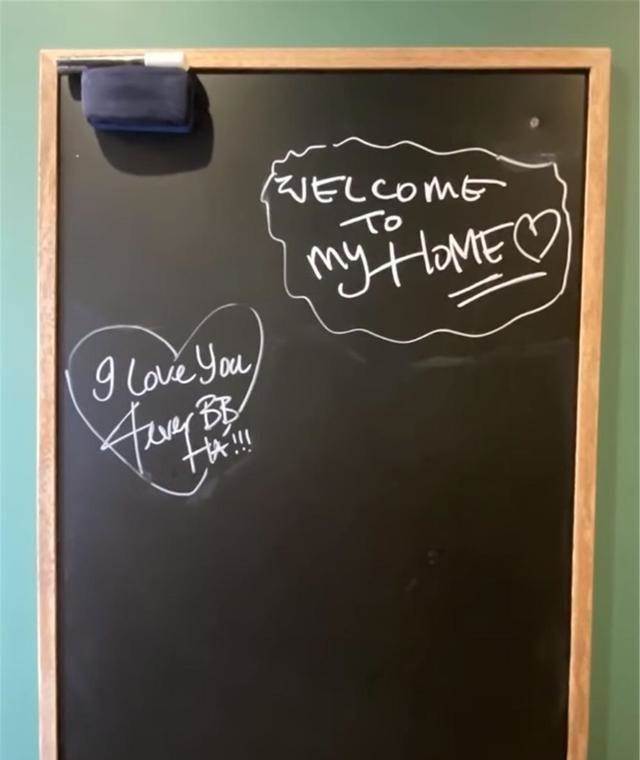 WELCOME
TO
my HOME
I love You
4ever BB
HÀ!!!